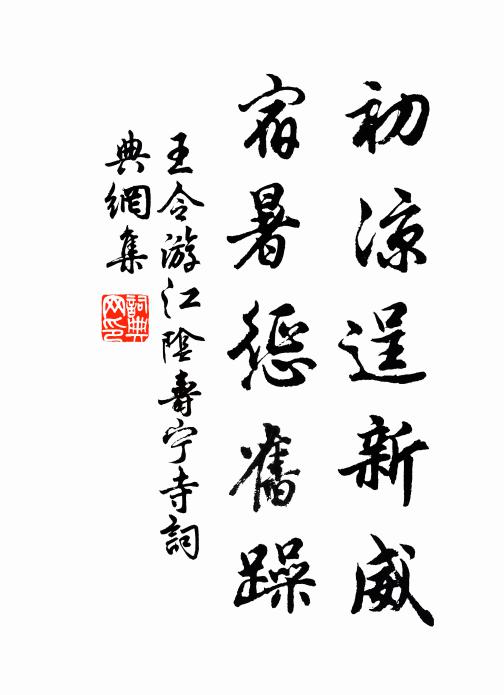 初涼逞新威
宿暑懲舊躁
王令游江陰壽宁寺詞
典網集
詞典網印